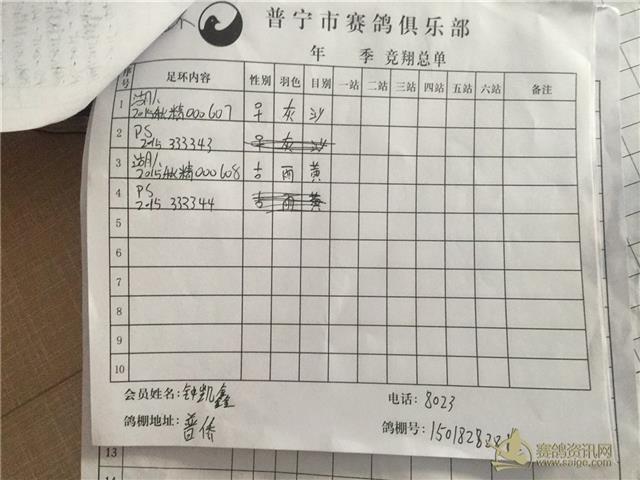 普宁市赛鸽俱乐部
年 季 竞翔总单
序号 足环内容 性别 羽色 目别 一站 二站 三站 四站 五站 六站 备注
1 2015 000607 灰 沙
2 PS 2015 333343 灰 沙
3 2015 000608 雨 黄
4 PS 2015 333344 雨 黄
5
6
7
8
9
10
会员姓名:钟凯鑫 电话:8023
鸽棚地址:普侨 鸽棚号:150182822
13
赛鸽资讯网
www.saige.com